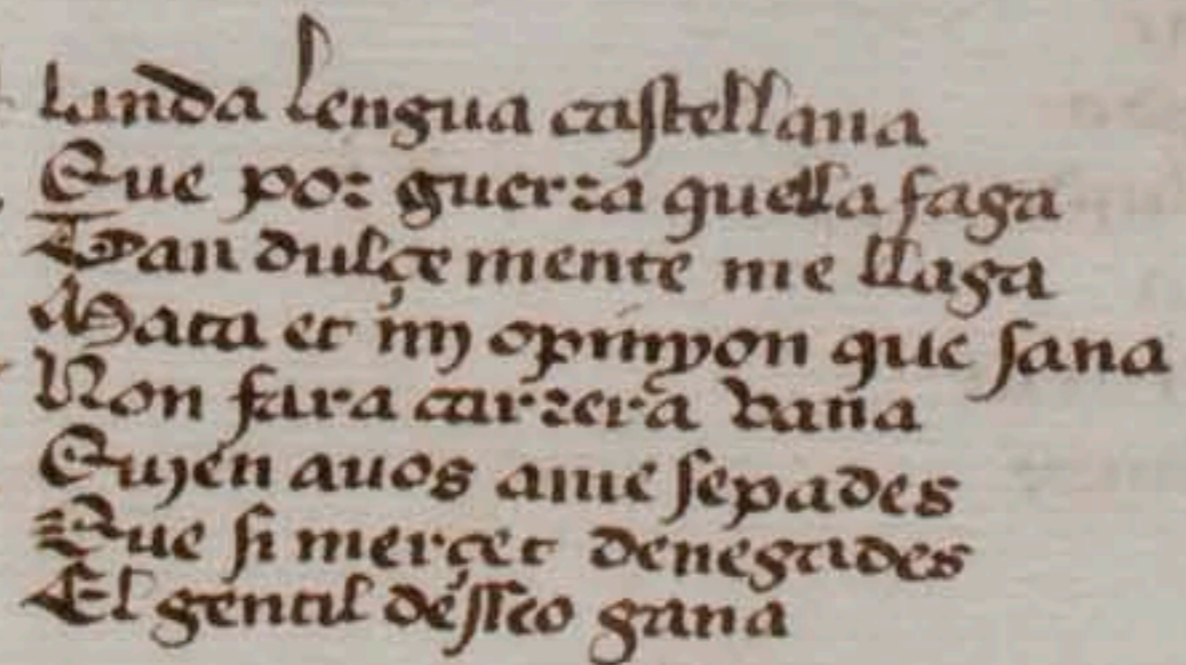 Linda lengua castellana
Que por guerra quella faga
Tan dulçe mente me llaga
Mata et mj opinyon que sana
Non fara carrera vana
Qujen auos ame sepades
Que si merçet denegades
El gentil desseo gana